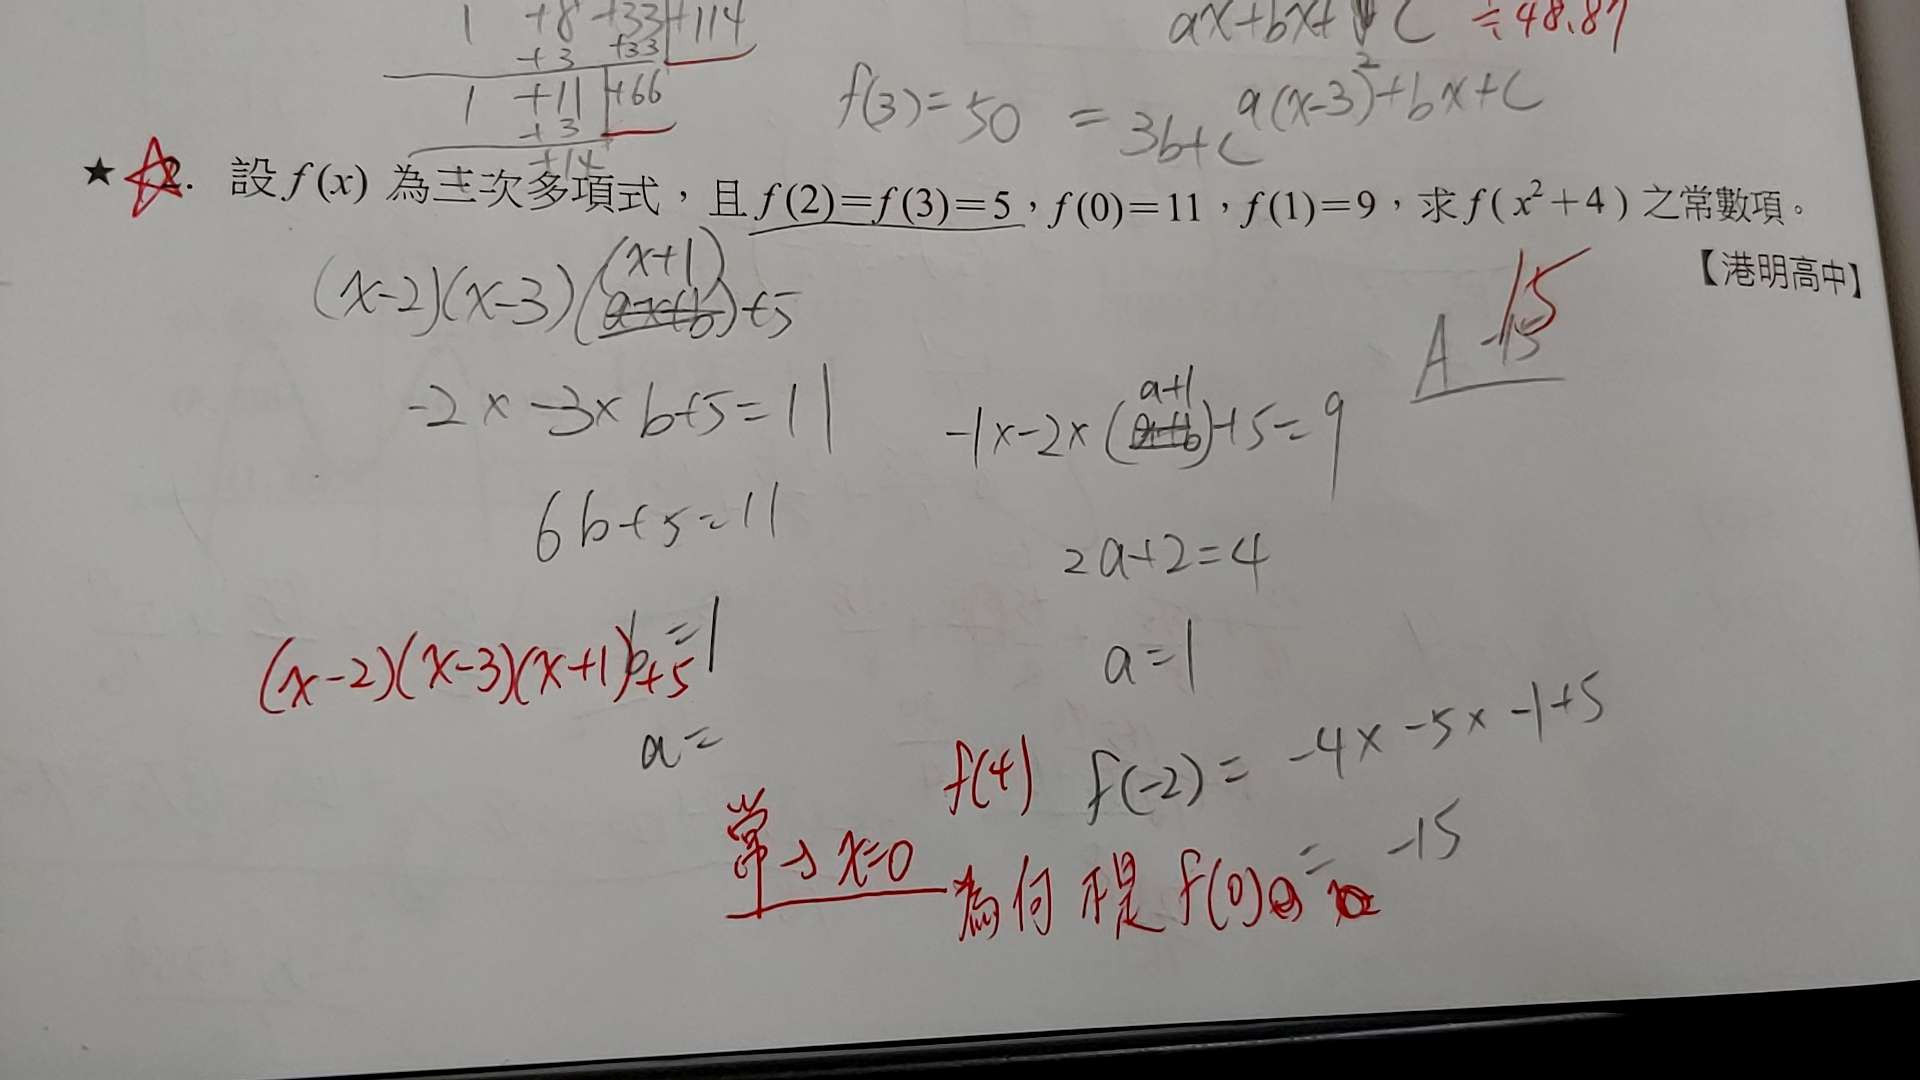 1 +8 +33 +114
+3 +33
1 +11 +66
+3
+14
ax+bx+ C ≒48.87
f(3)=50 =3b+C
a(x-3)²+bx+C
★ 2. 設 f(x) 為三次多項式，且 f(2)=f(3)=5，f(0)=11，f(1)=9，求 f(x²+4) 之常數項。
【港明高中】
(x+1)
(x-2)(x-3)(ax+b)+5
15
A -15
-2×-3×b+5=11
a+1
-1×-2×(a+b)+5=9
6b+5=11
2a+2=4
b=1
a=1
(x-2)(x-3)(x+1)+5
a=
f(4) f(-2)= -4×-5×-1+5
= -15
常→x=0
為何不是 f(0)